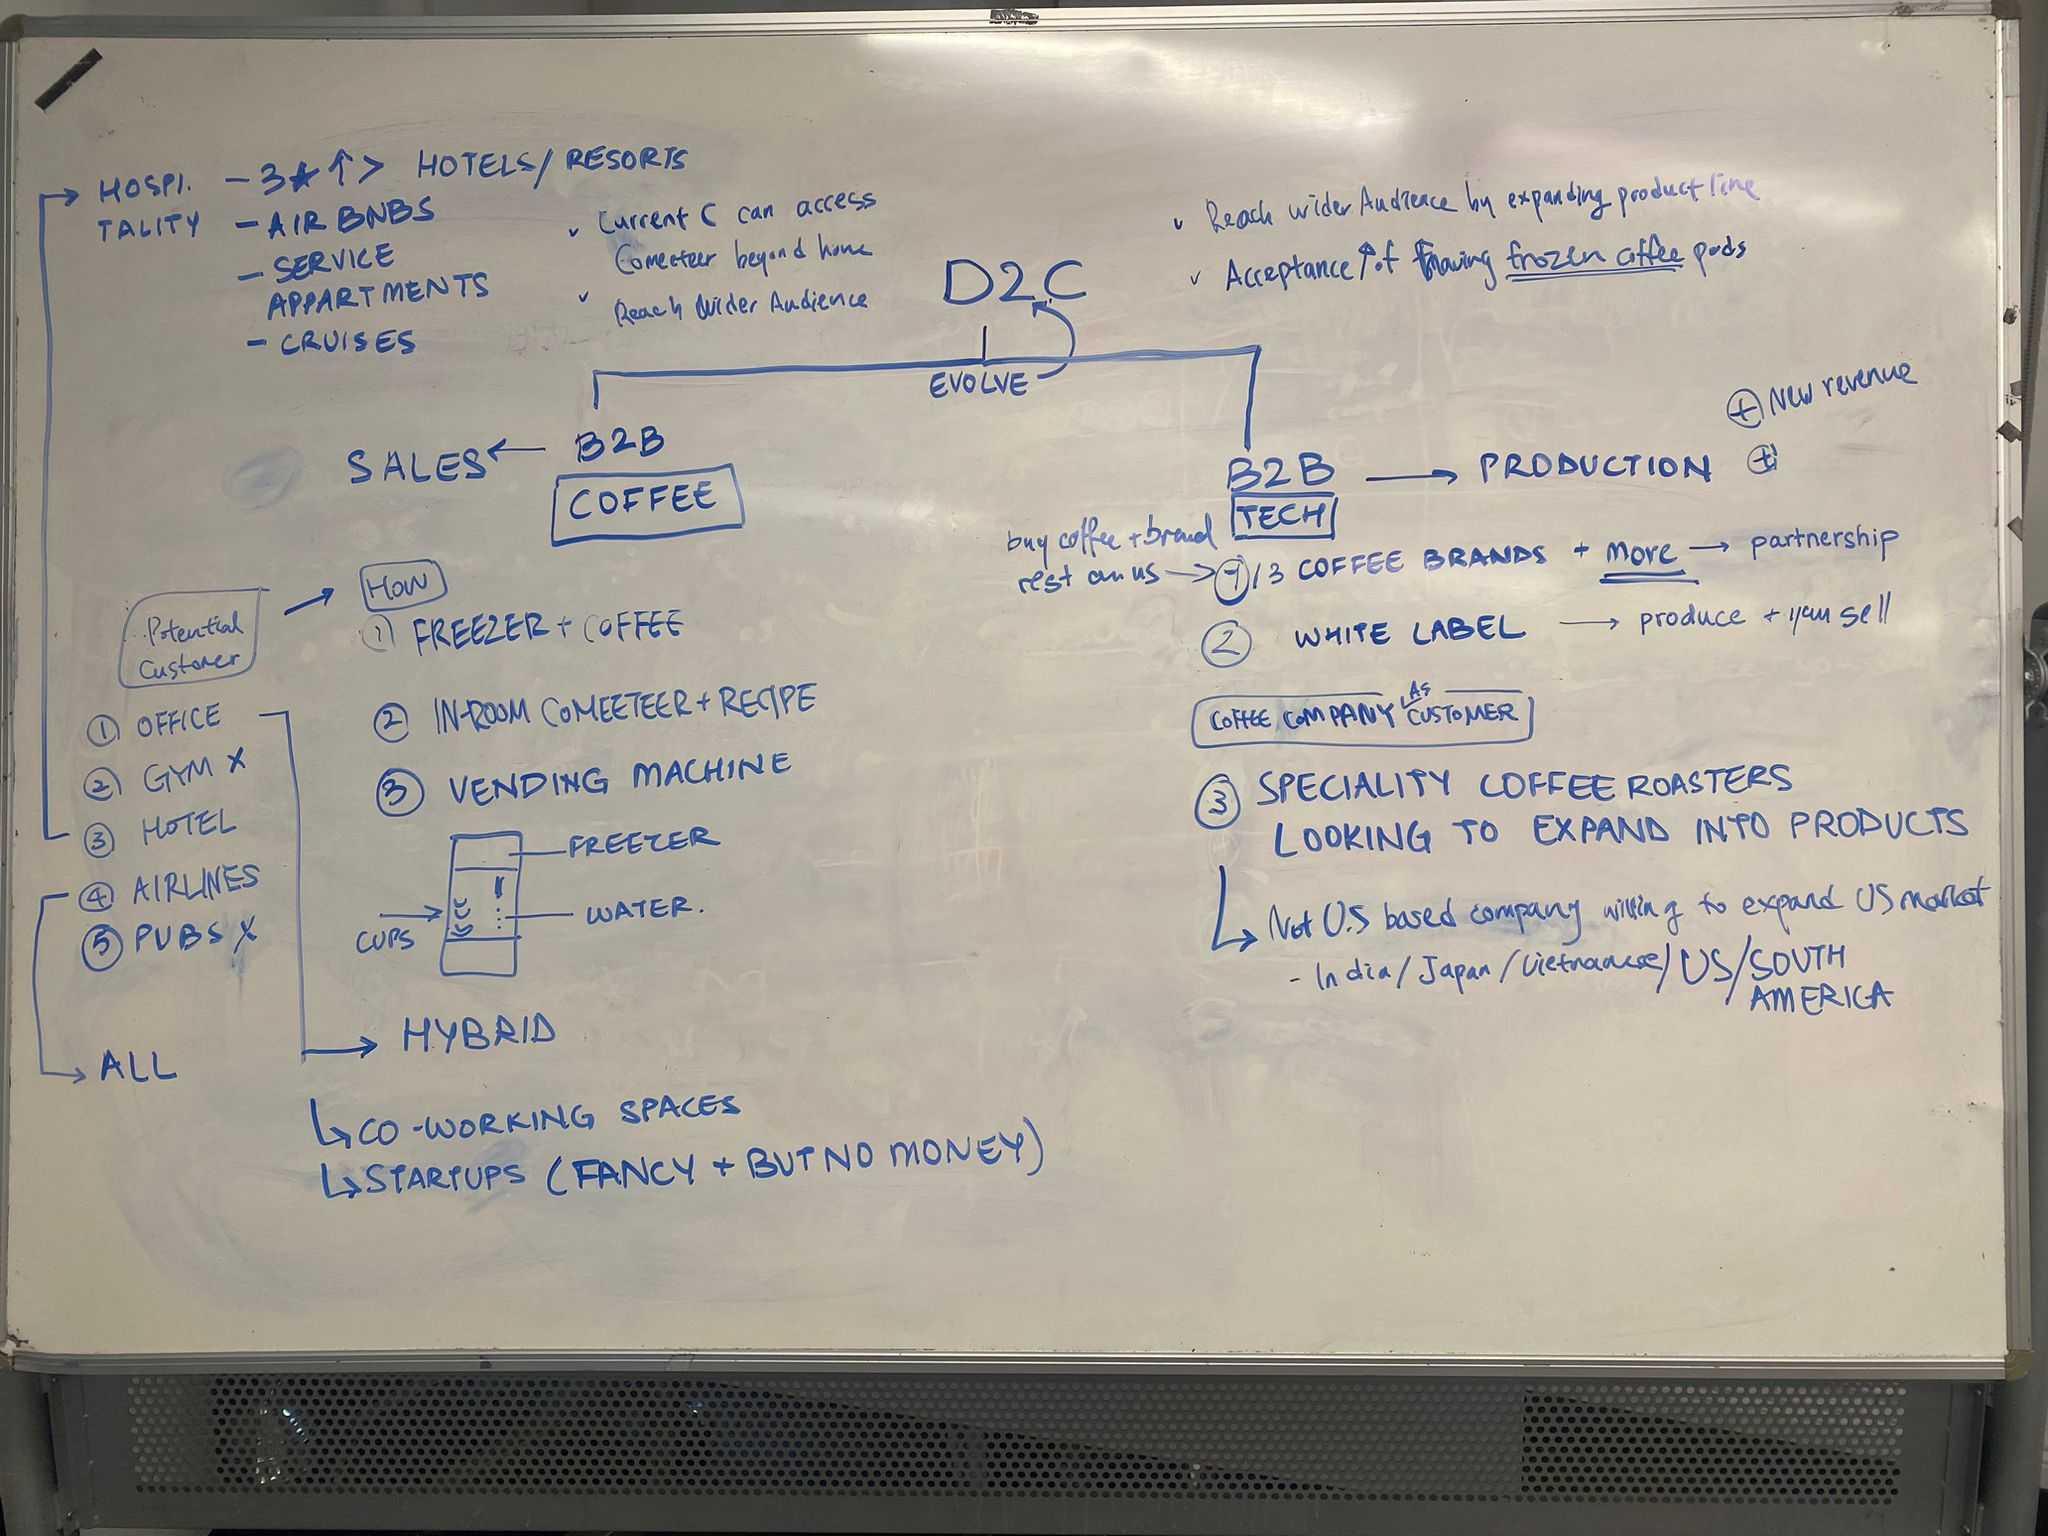 HOSPI.
TALITY
- 3★↑> HOTELS/RESORTS
- AIR BNBS
- SERVICE
APPARTMENTS
- CRUISES
Current C can access
Cometeer beyond home
Reach Wider Audience
D2C
EVOLVE
Reach wider Audience by expanding product line
Acceptance ↑ of having frozen coffee pods
SALES ← B2B
COFFEE
B2B → PRODUCTION
TECH
+ New revenue
+
buy coffee + brand
rest on us →
1/3 COFFEE BRANDS + more → partnership
2 WHITE LABEL → produce + you sell
COFFEE COMPANY AS CUSTOMER
3 SPECIALITY COFFEE ROASTERS
LOOKING TO EXPAND INTO PRODUCTS
Not U.S based company willing to expand US market
- India/Japan/Vietnamese/US/SOUTH
AMERICA
Potential
Customer
1 OFFICE
2 GYM X
3 HOTEL
4 AIRLINES
5 PUBS X
ALL
How
1 FREEZER + COFFEE
2 IN-ROOM COMEETEER + RECIPE
3 VENDING MACHINE
FREEZER
WATER.
CUPS
HYBRID
CO-WORKING SPACES
STARTUPS (FANCY + BUT NO MONEY)